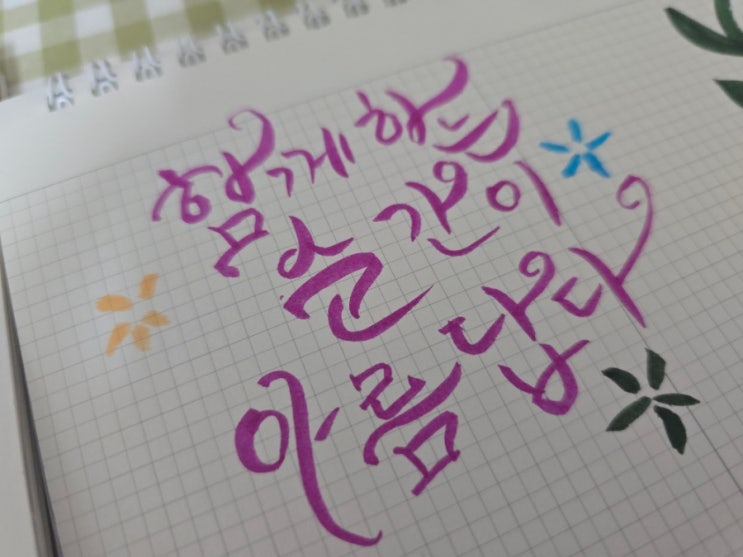 함께 하는
순간이
아름답다